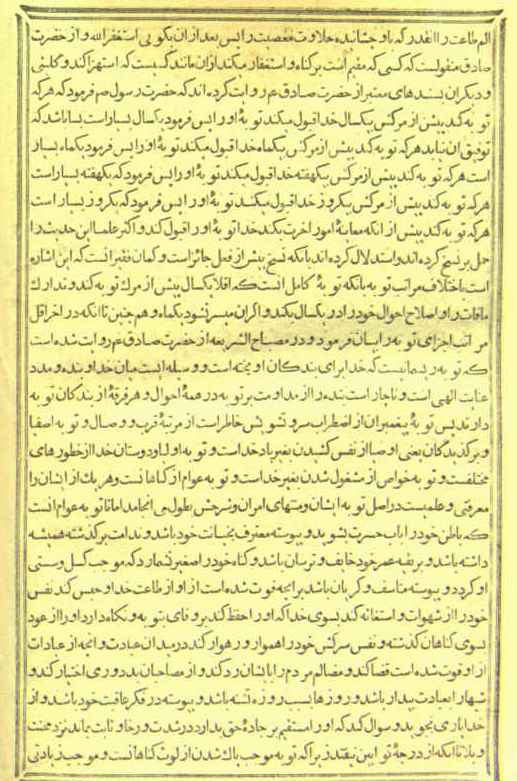 الم طاعت را آنقدر که باو چشانیده حلاوت معصیت را پس بعد از ان بگویی استغفر الله و از حضرت
صادق منقولست که کسی که مقیم است بر گناه و استغفار میکند از ان مانند کسیست که استهزا کند و کلینی
و دیگران بسندهای معتبر از حضرت صادق ع روایت کرده اند که حضرت رسول ص فرمود که هر که
توبه کند پیش از مرگش بیکسال خدا قبول میکند توبۀ او را پس فرمود یکسال بسیار است بسا باشد که
توفیق ان نیابد هر که توبه کند پیش از مرگش بیکماه خدا قبول میکند توبۀ او را پس فرمود یکماه بسیار
است هر که توبه کند پیش از مرگش بیکهفته خدا قبول میکند توبۀ او را پس فرمود که یکهفته بسیار است
هر که توبه کند پیش از مرگش بیکروز خدا قبول میکند توبۀ او را پس فرمود که یکروز بسیار است
هر که توبه کند پیش از انکه معاینۀ امور اخرت بکند خدا توبۀ او را قبول کند و اکثر علما این حدیث را
حمل بر نسخ کرده اند و استدلال کرده اند بانکه نسخ پیش از فعل جائز است و گمان فقیر انست که این اشاره
است باختلاف مراتب توبه بانکه توبۀ کامل انست که اقلا یکسال پیش از مرک توبه کند و تدارک
مافات را و اصلاح احوال خود را در یکسال بکند و اگر ان میسر نشود یکماه و هم چنین تا انکه در اخر اقل
مراتب اجزای توبه را بیان فرمود و در مصباح الشریعه از حضرت صادق ع روایت شده است
که توبه ریسمانیست که خدا برای بندگان اویخته است و وسیله ایست میان خدا و بنده و مدد
عنایت الهی است و ناچار است بنده را از مداومت بر توبه در همۀ احوال و هر فرقۀ از بندگان توبه
دارند پس توبۀ پیغمبران از اضطراب سر و تشویش خاطر است از مرتبۀ قرب و وصال و توبه اصفیا
و برگزیدگان یعنی اوصیا از نفس کشیدن بغیر یاد خداست و توبه اولیا و دوستان خدا از خطورهای
مختلفست و توبه خواص از مشغول شدن بغیر خداست و توبه عوام از گناهانست و هر یک از ایشان را
معرفتی و علمیست در اصل توبه ایشان و منتهای امر ان و شرحش بطول می انجامد اما توبه عوام انست
که باطن خود را باب حسرت بشوید و پیوسته معترف بخیانت خود باشد و ندامت بر گذشته همیشه
داشته باشد و بر بقیه عمر خود خایف و ترسان باشد و گناه خود را صغیر نشمارد که موجب کسل و سستی
او گردد و پیوسته متاسف و گریان باشد بر انچه فوت شده است از او از طاعت خدا و حبس کند نفس
خود را از شهوات و استغاثه کند بسوی خدا که او را حفظ کند بر وفای بتوبه و نگاه دارد او را از عود
بسوی گناهان گذشته و نفس سرکش خود را هموار و رهوار کند در میدان عبادت و انچه از عبادات
از او فوت شده است قضا کند و مظالم مردم را بایشان رد کند و از مصاحبان بد دوری اختیار کند و
شبها را بعبادت بیدار باشد و روزها بسبب روزه تشنه باشد و پیوسته در فکر عاقبت خود باشد و از
خدا یاری بجوید و سوال کند که او را مستقیم بر جادۀ حق بدارد در شدت و رخا و ثابت بماند نزد محنت
و بلا تا انکه از درجۀ توابین نیفتد زیرا که توبه موجب پاک شدن از لوث گناهانست و موجب زیادتی